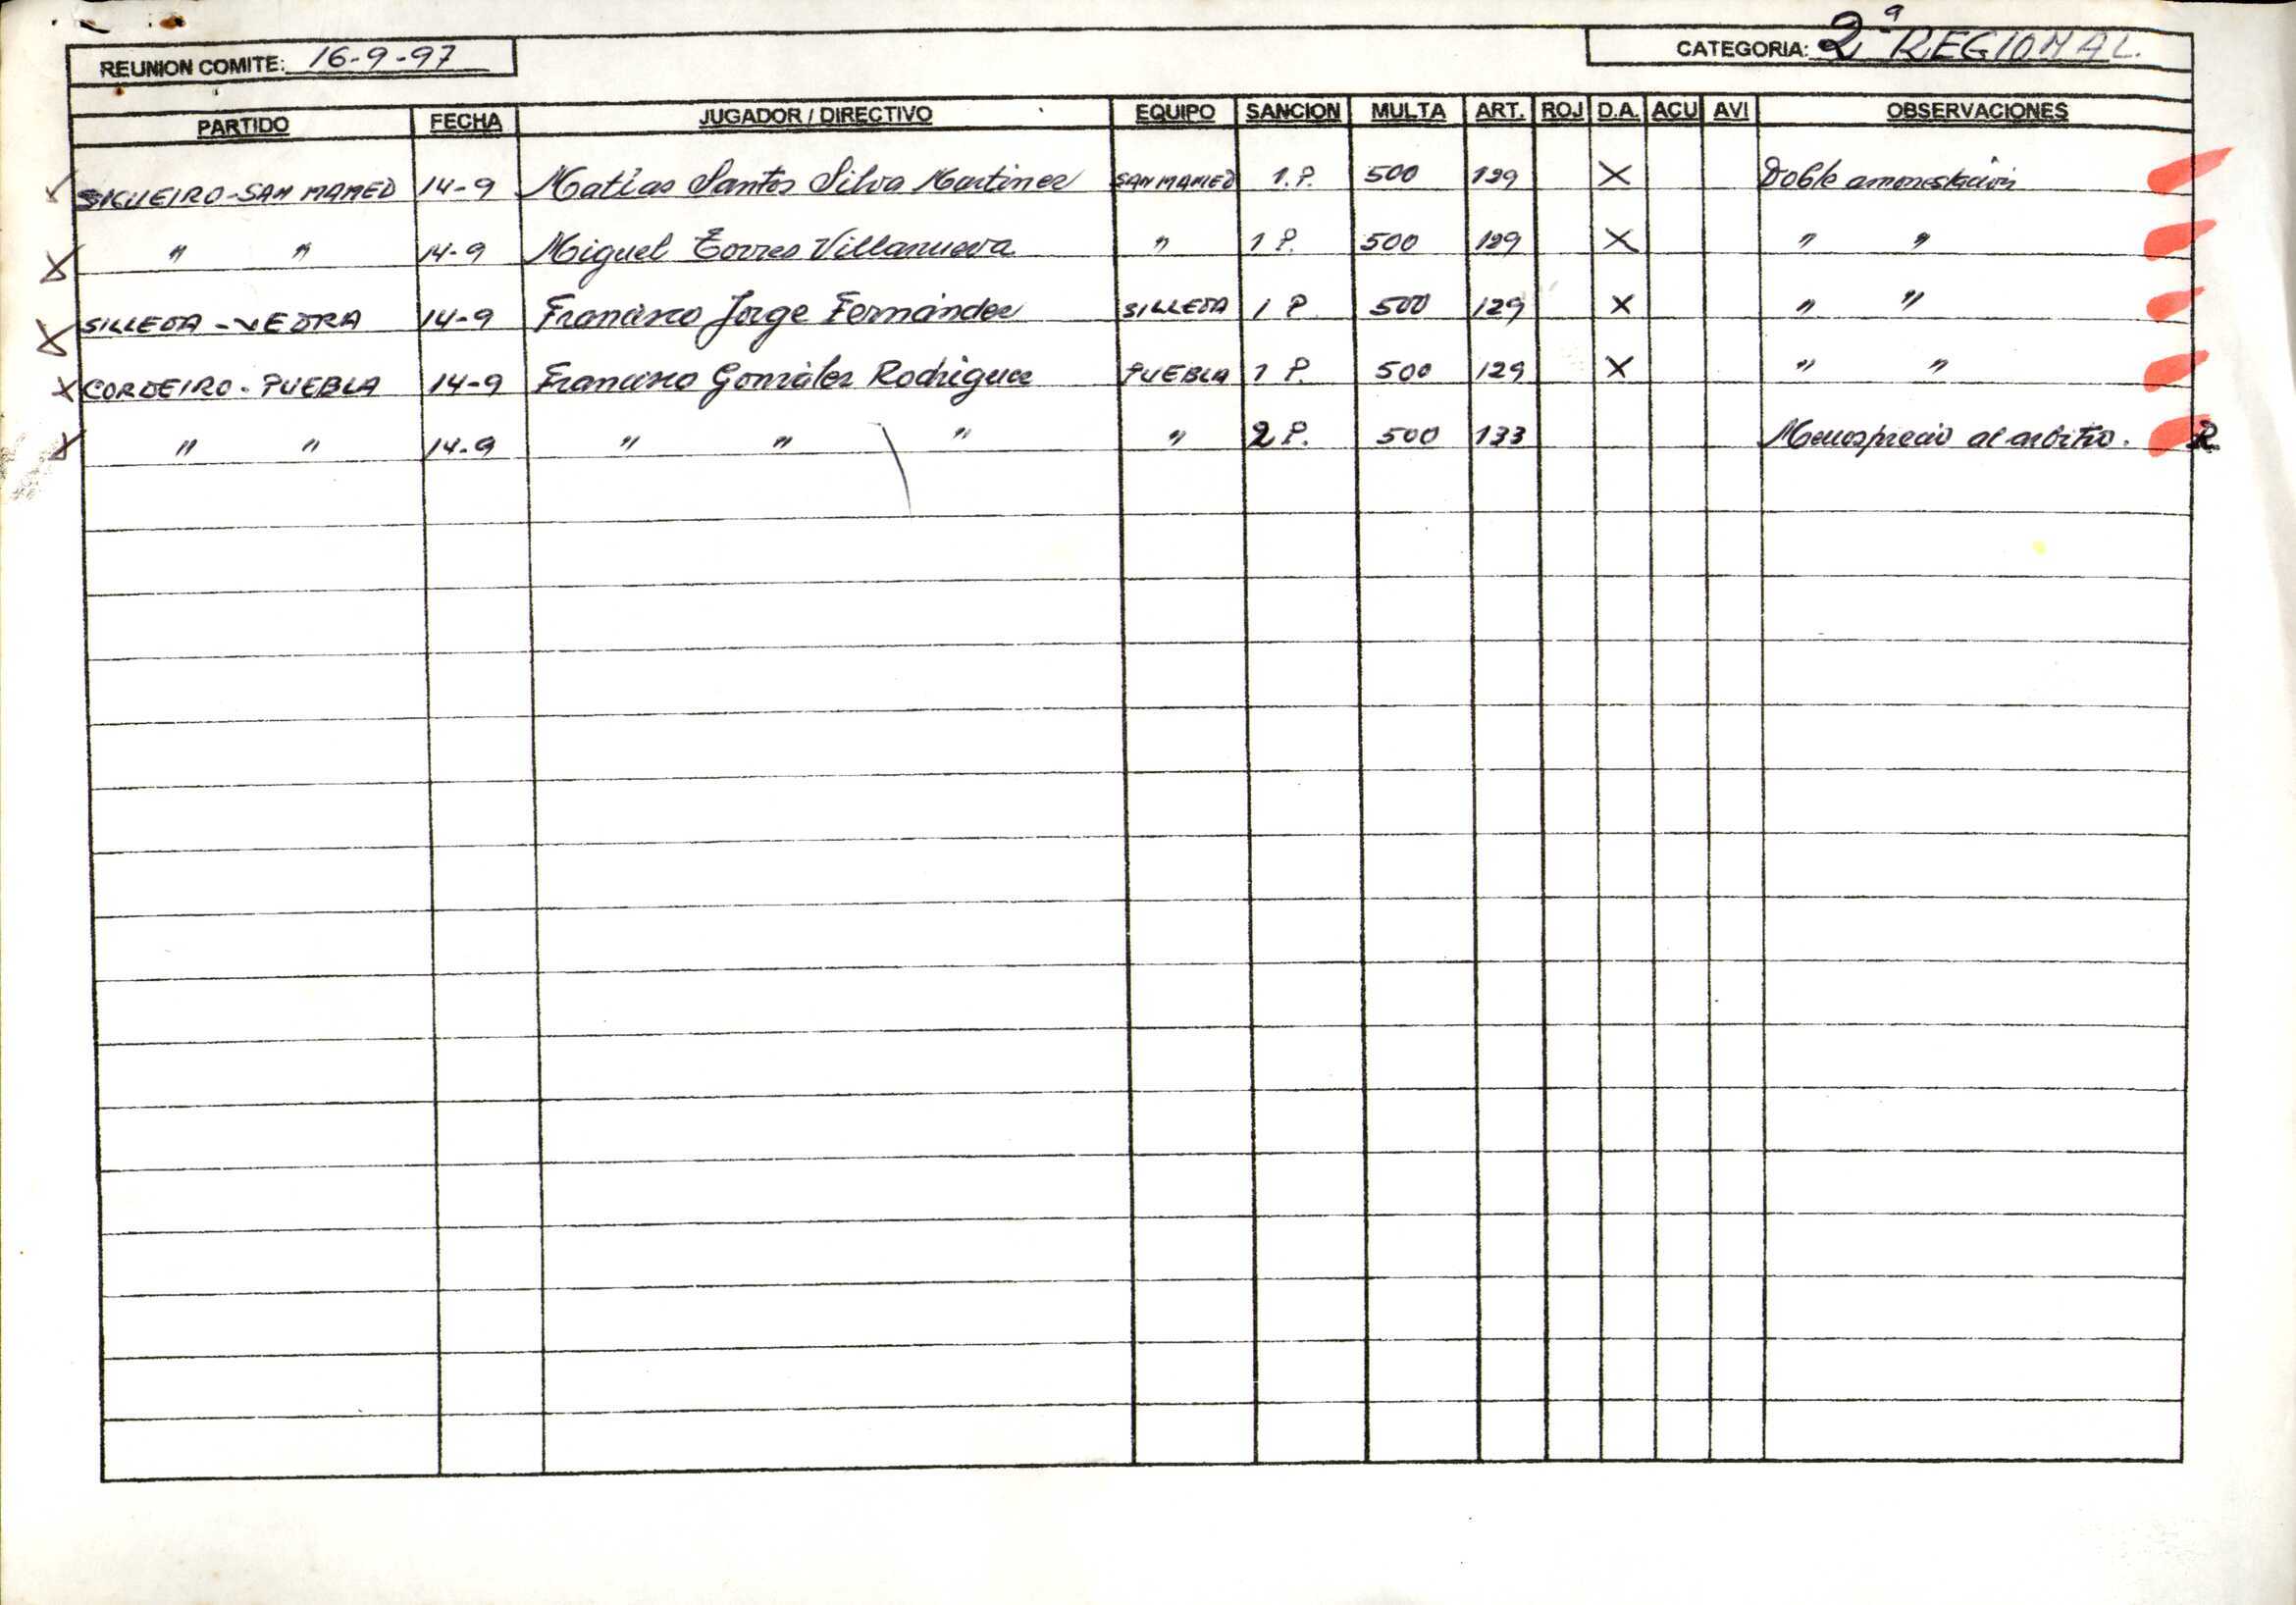 REUNION COMITE: 16-9-97 CATEGORIA: 2ª REGIONAL.
PARTIDO FECHA JUGADOR / DIRECTIVO EQUIPO SANCION MULTA ART. ROJ D.A. ACU AVI OBSERVACIONES
SIGUEIRO-SAN MAMED 14-9 Matías Santos Silva Martinez SAN MAMED 1.P. 500 129 X Doble amonestación
" " 14-9 Miguel Torres Villanueva " 1 P. 500 129 X " "
SILLEDA - VEDRA 14-9 Francisco Jorge Fernández SILLEDA 1 P 500 129 X " "
CORDEIRO - PUEBLA 14-9 Francisco González Rodríguez PUEBLA 1 P. 500 129 X " "
" " 14-9 " " " " 2 P. 500 133 Menosprecio al arbitro. R